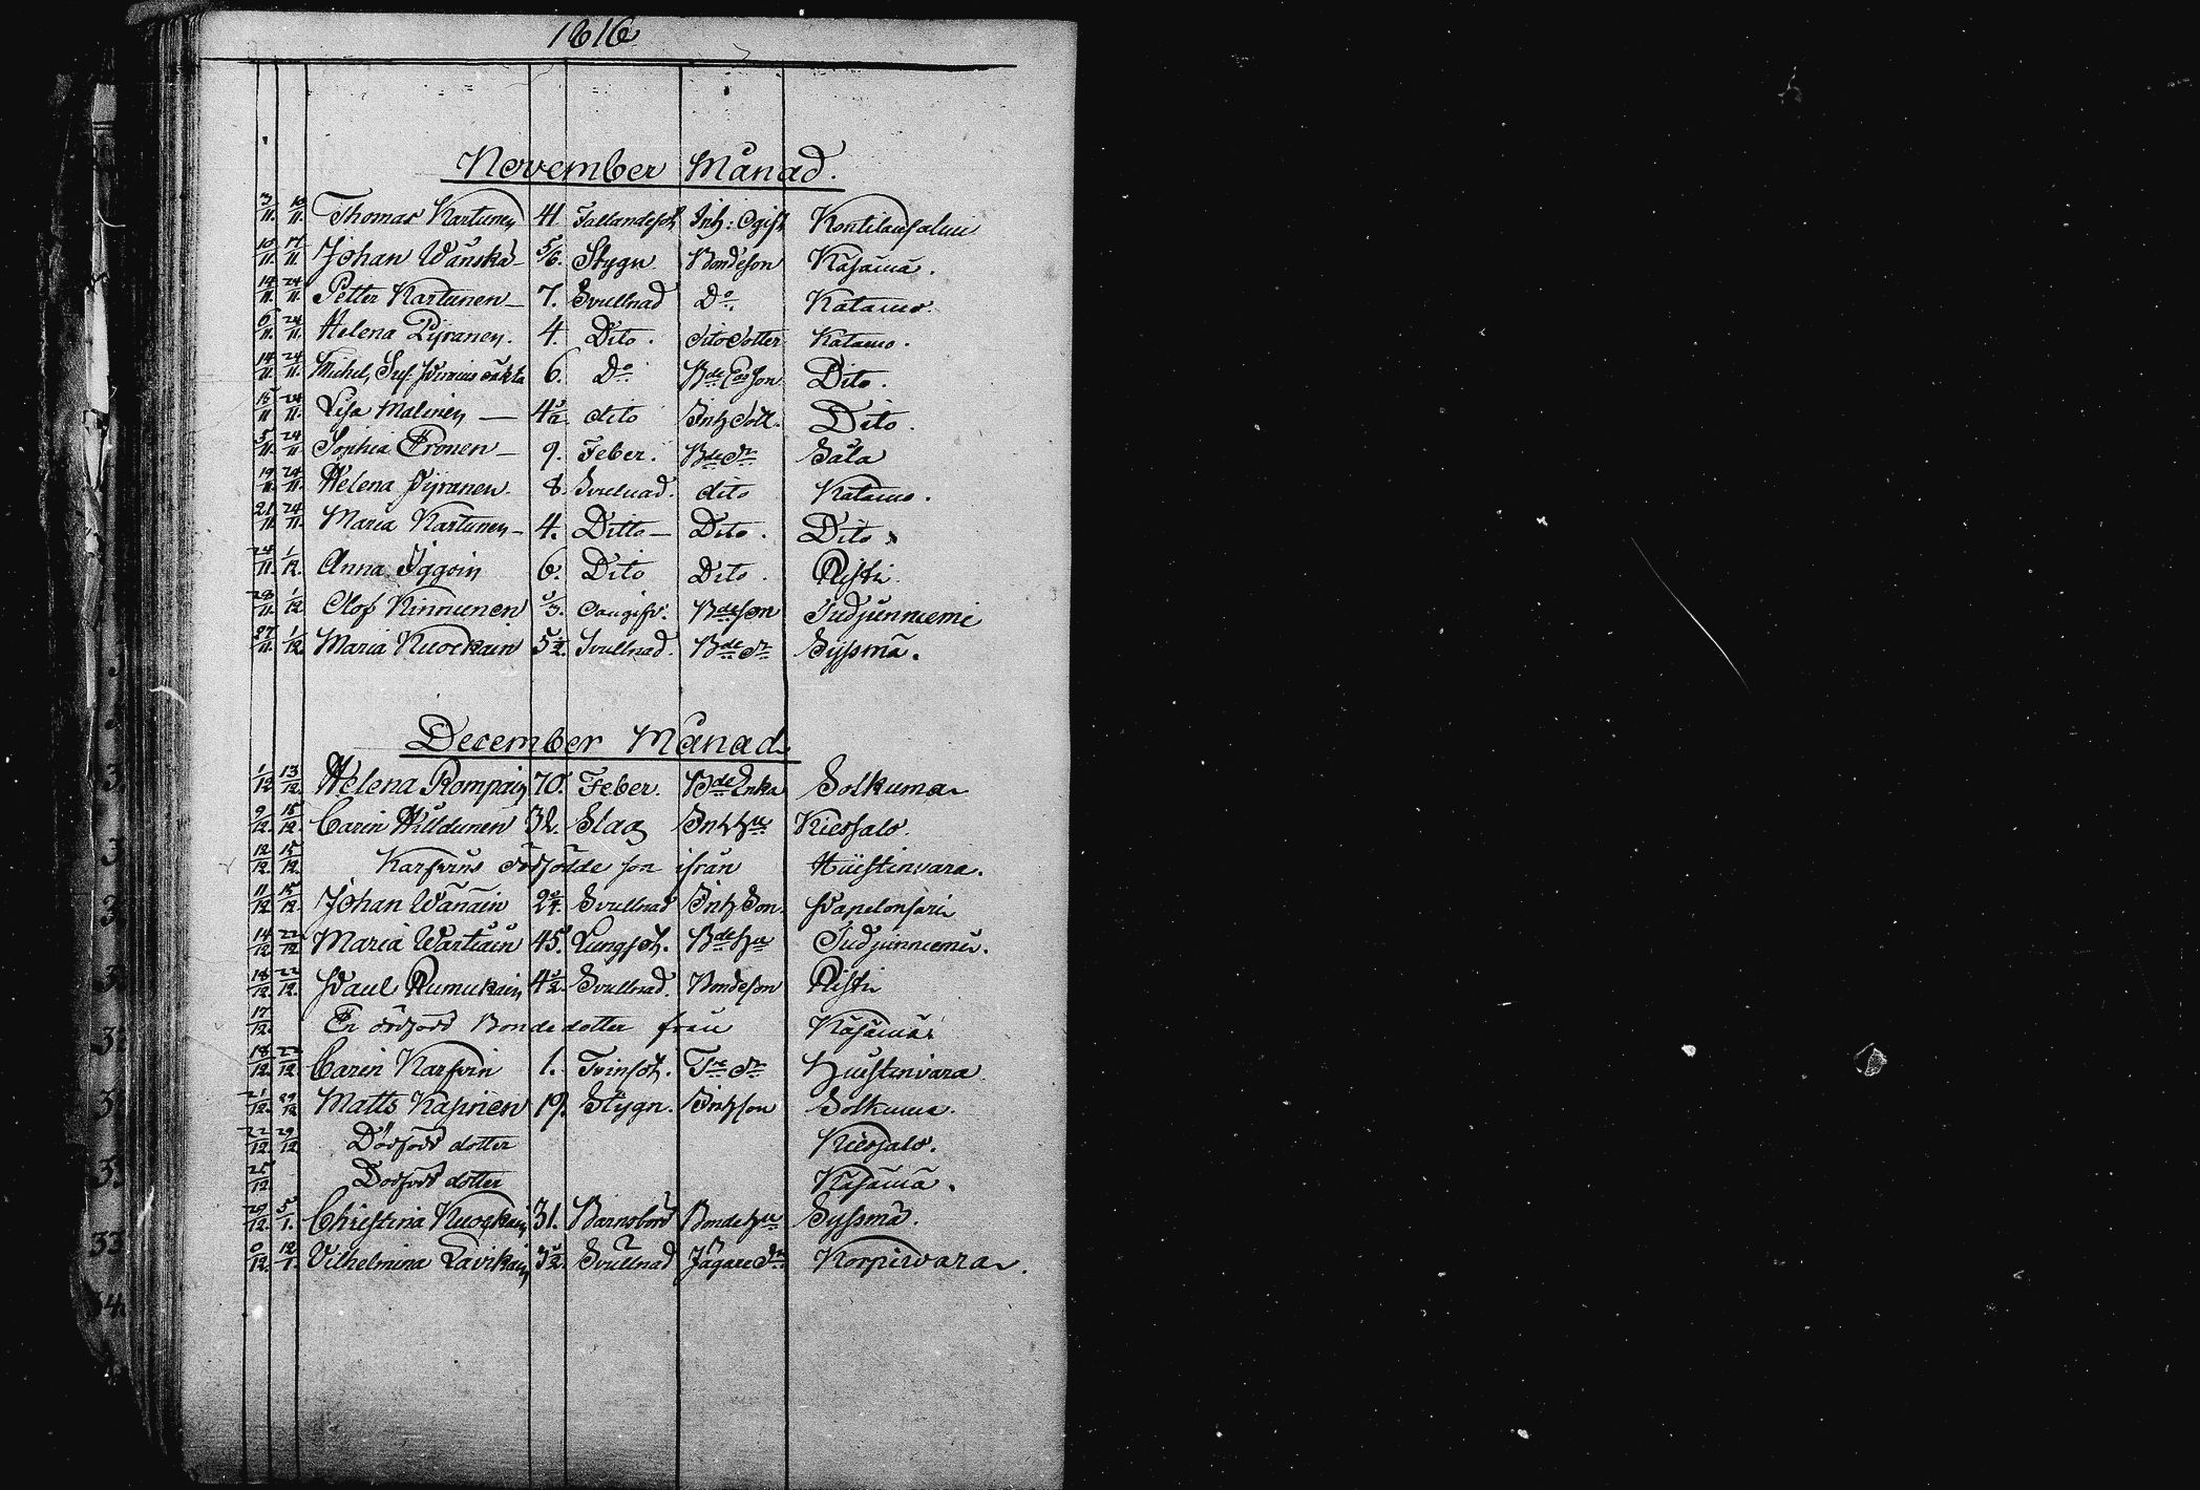 1816
November Månad.
3/11. 10/11. Thomas Kartunen 41 Fallandesot Inh: Ogift Kontilansalmi
10/11. 17/11 Johan Wänskä - 5/6. Stygn Bondeson Käsämä.
19/11. 24/11 Petter Kartunen - 7. Svullnad Do Katamo.
6/11. 24/11. Helena Pyranen. 4. Dito. dito dotter Katamo.
14/11. 24/11. Michel, 6. Do son Dito.
15/11 24/11. Lisa Malinen - 4 1/2. dito Inh dott. Dito.
5/11. 24/11 Sophia Eronen - 9. Feber. Bde dr Sala
19/11. 24/11. Helena Pyranen. 8. Svulnad. dito Katamo.
21/11. 24/11. Maria Kartunen - 4. Ditto - Dito. Dito.
24/11. 1/12. Anna Iggoin 6. Dito Dito. Risti
28/11. 1/12 Olof Kinnunen 1/3. Oangifv. Bdeson Judjunniemi
27/11. 1/12. Maria Kuockain 5 1/2. Svullnad. Bde dr Syssmä.
December Månad.
1/12 13/12. Helena Rompain 70. Feber. Bde Enka Solkuma
9/12. 15/12. Carin Hilldunen 32. Slag Inh hu Kiessalo.
12/12. 15/12. Karfvins dödfödde son ifrån Huistinvara.
11/12 15/12. Johan Wänäin 2 1/4. Svullnad Inh Son.
14/12 22/12 Maria Wartiain 45. Lungsot. Bde hu Judjunniemi.
18/12. 22/12. Paul Rumukain 4 1/2. Svullnad. Bondeson Risti
17/12. En dödfödd Bonde dotter från Käsämä.
18/12. 22/12. Carin Karfvin 1. Tvinsot. dr Huistinvara
21/12. 29/12 Matts Kapinen 19. Stygn. Inhson Solkuma.
22/12 29/12 Dödfödd dotter Kiessalo.
25/12 Dödfödd dotter Käsämä.
29/12. 5/1. Christina Kuockain 31. Barnsbörd Bonde hu Syssmä.
12. 12/1. Vilhelmina Lavikain 3 1/2. Svullnad Jägare dr Korpiwara.